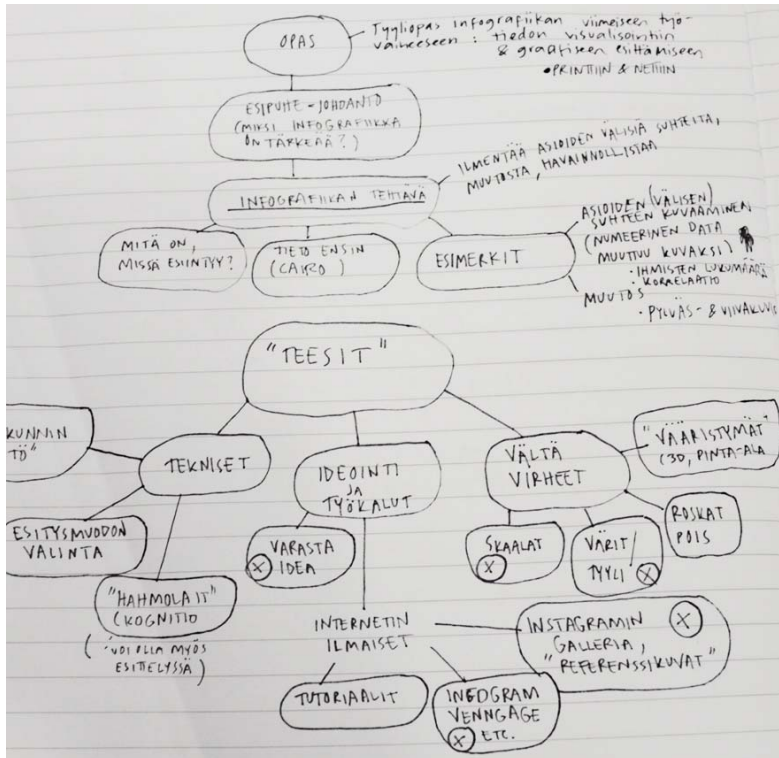 OPAS
Tyyliopas infografiikan viimeiseen työ-
vaiheeseen : tiedon visualisointiin
& graafiseen esittämiseen
• PRINTTIIN & NETTIIN
ESIPUHE - JOHDANTO
(MIKSI INFOGRAFIIKKA
ON TÄRKEÄÄ?)
INFOGRAFIIKAN TEHTÄVÄ
ILMENTÄÄ ASIOIDEN VÄLISIÄ SUHTEITA,
MUUTOSTA, HAVAINNOLLISTAA
MITÄ ON,
MISSÄ ESIINTYY?
TIETO ENSIN
(CAIRO)
ESIMERKIT
ASIOIDEN (VÄLISEN)
SUHTEEN KUVAAMINEN
(NUMEERINEN DATA
MUUTTUU KUVAKSI)
• IHMISTEN LUKUMÄÄRÄ
• KORRELAATIO
MUUTOS
• PYLVÄS- & VIIVAKUVIO
"TEESIT"
KUNNIN
TÖ"
TEKNISET
ESITYSMUODON
VALINTA
"HAHMOLAIT"
(KOGNITIO
( • VOI OLLA MYÖS
ESITTELYSSÄ )
IDEOINTI
JA
TYÖKALUT
VARASTA
IDEA
X
INTERNETIN
ILMAISET
TUTORIAALIT
INFOGRAM
VENNGAGE
X ETC.
INSTAGRAMIN X
GALLERIA,
"REFERENSSIKUVAT"
VÄLTÄ
VIRHEET
"VÄÄRISTYMÄT"
(3D, PINTA-ALA
SKAALAT
X
VÄRIT/
TYYLI X
ROSKAT
POIS